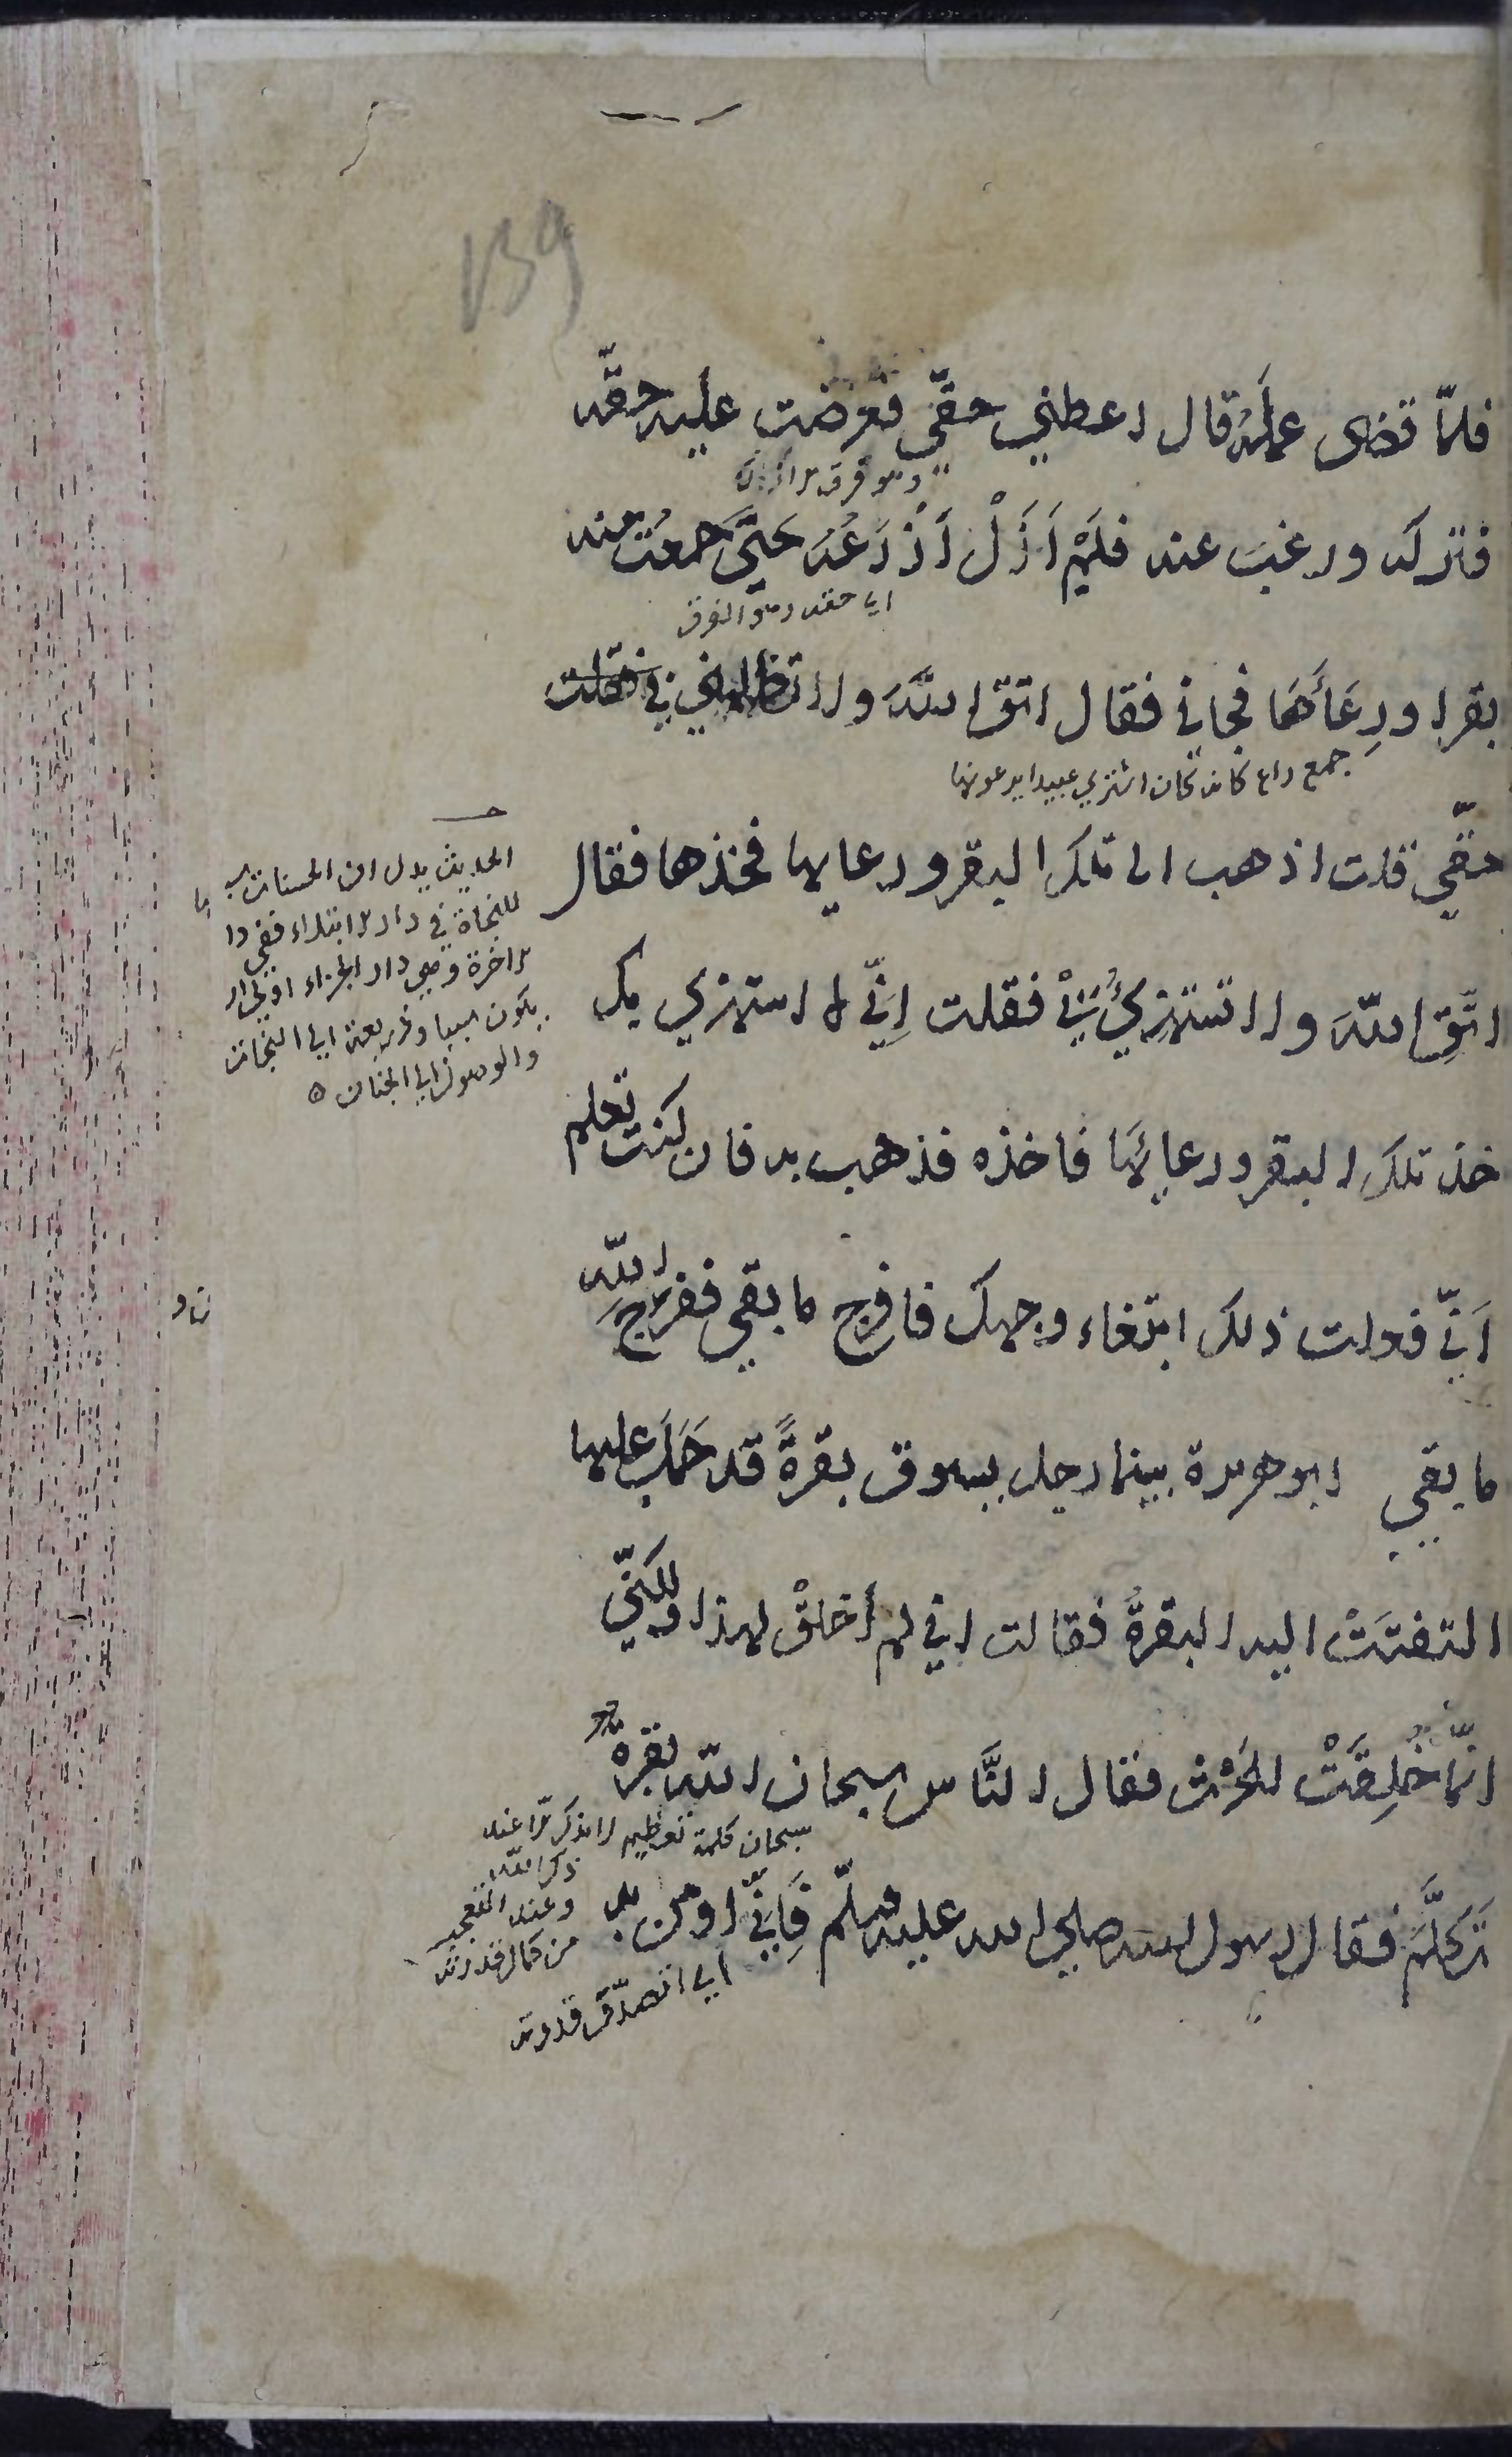 139
فلمّا قضى عملَهُ قال اعطني حقّي فعرضت عليه حقّه
وهو فرق
فتركه ورغب عنه فلَمْ اَزَلْ اَزْرَعُهُ حتَّى جمعتُ منه
اي حقه وهو الفرق
بقرا ورِعَاءَهَا فجاني فقال اتق اللهَ ولا تظلمني في فقلت
جمع راع كانه كان اشتري عبيدا يرعونها
حقّي قلت اذهب الى تلك البقر ورعايها فخذها فقال
اتَّقِ اللهَ ولا تستهزئُ بيْ فقلت اِنّي لا استهزي بك
خذ تلك البقر ورعائَها فاخذه فذهب به فان كنت تعلم
اَنّي فعلت ذلك ابتغاء وجهك فافرج ما بقي ففرّج اللهُ
ما بقي ابو هريرة بينما رجل يسوق بقرةً قد حَمَلَ عليها
التفتَتْ اليه البقرةُ فقالت اني لم أُخلقْ لهذا ولكنّي
انّما خُلِقَتْ للحَرْث فقال النَّاس سبحان الله بقرةٌ
سبحان كلمة تعظيم لا يذكر الا عند
ذكر الله
وعند التعجب
من كمال قدرته
تَكلَّمَ فقال رسول الله صلى الله عليه وسلّم فَإِنّي اومن به
اي اتصدّق قدرته
الحديث يدل ان الحسنات
للنجاة في دار الابتلاء ففي دا
الاخرة وهي دار الجزاء اولى ان
يكون سببا وذريعة الي النجات
والوصول الي الجنان